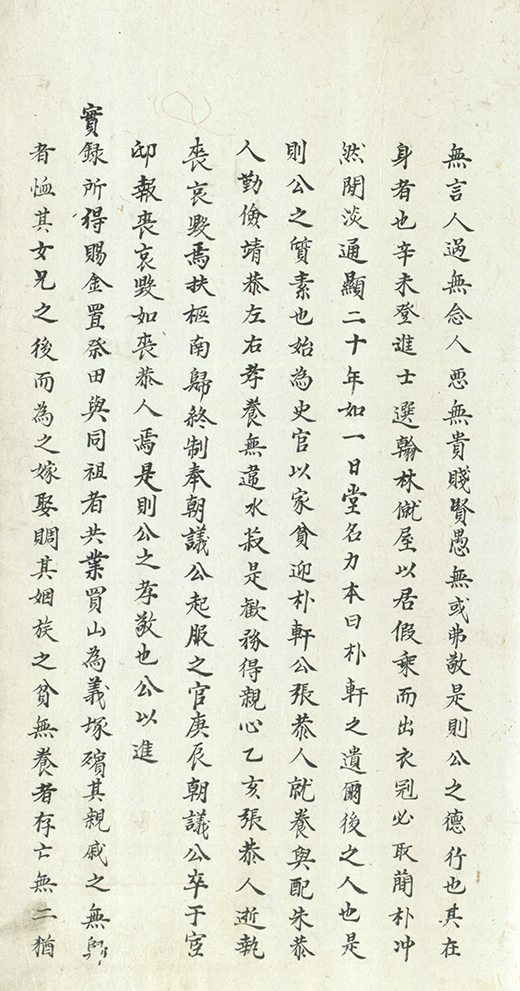 無言人過無念人惡無貴賤賢愚無或弗敬是則公之德行也其在
身者也辛未登進士選翰林僦屋以居假乘而出衣冠必取蕳朴冲
然閒淡通顯二十年如一日堂名力本曰朴軒之遺爾後之人也是
則公之質素也始為史官以家貧迎朴軒公張恭人就養與配朱恭
人勤儉靖恭左右孝養無違水菽是歡務得親心乙亥張恭人逝執
喪哀毀焉扶柩南歸終制奉朝議公起服之官庚辰朝議公卒于官
邸報喪哀毀如喪恭人焉是則公之孝敬也公以進
實錄所得賜金置祭田與同祖者共業買山為義塚殯其親戚之無歸
者恤其女兄之後而為之嫁娶賙其姻族之貧無養者存亡無二猶